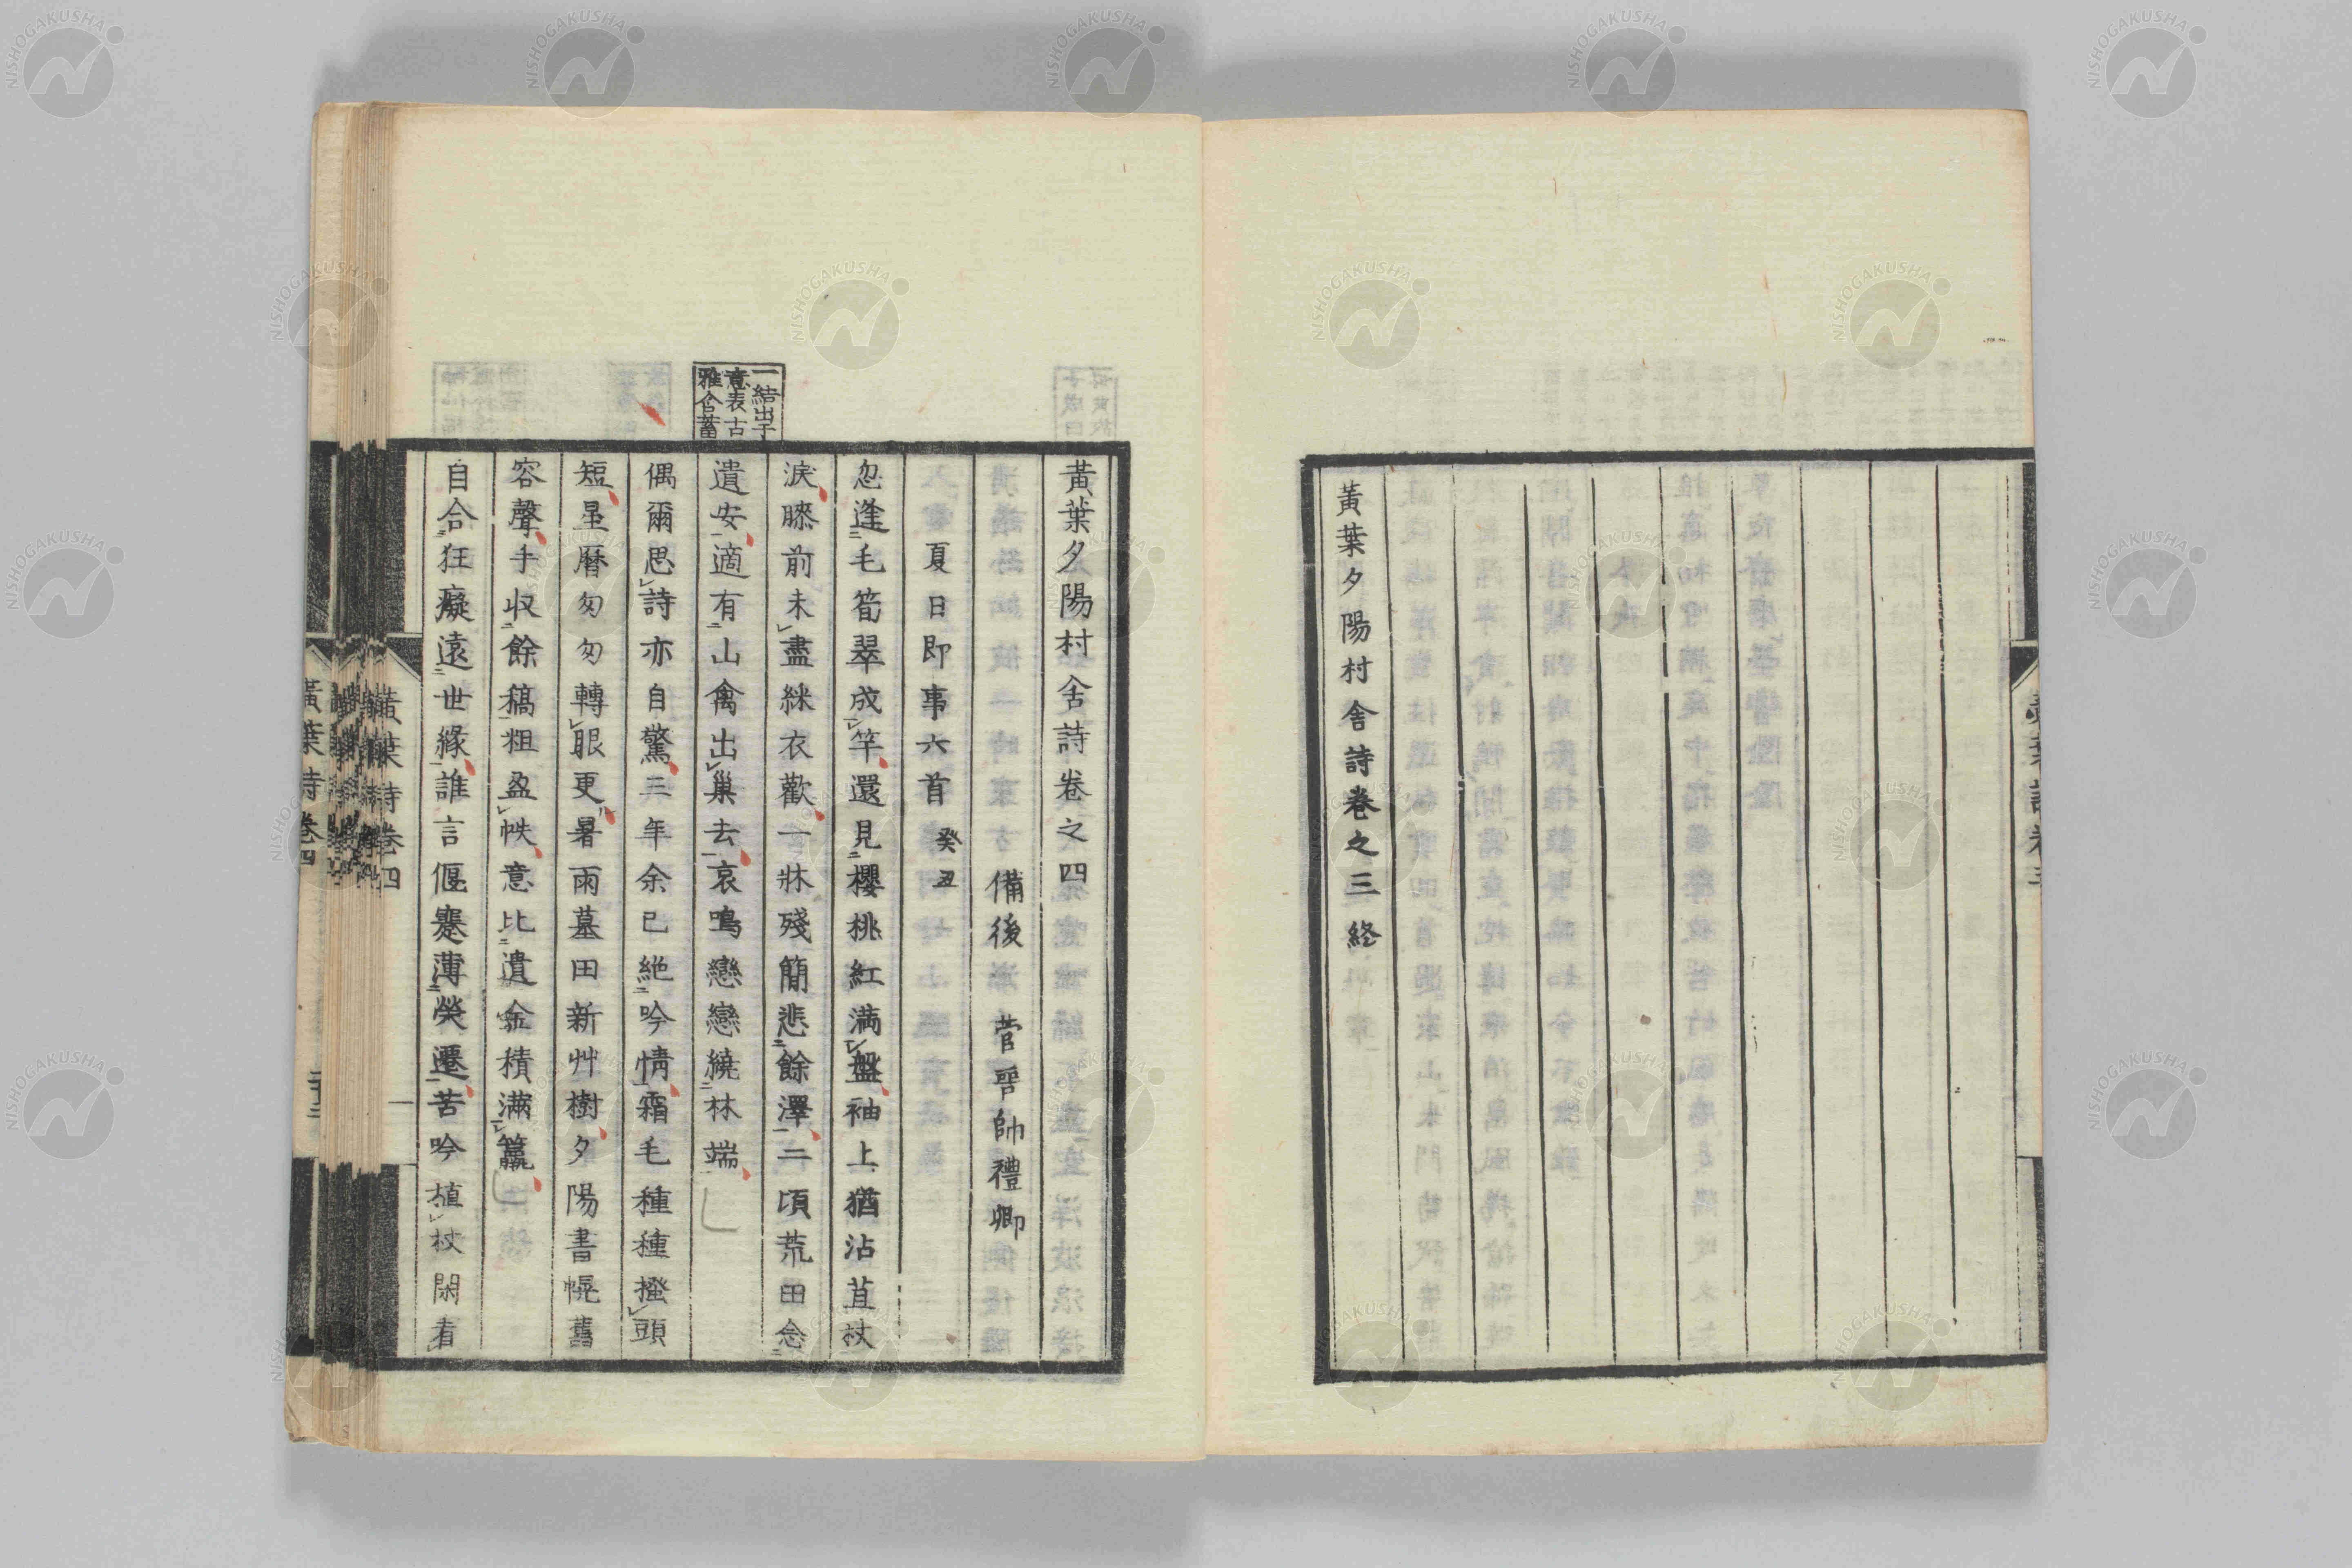 黃葉夕陽村舍詩卷之三終
黃葉夕陽村舍詩卷之四
備後 菅晉帥禮卿
夏日即事六首 癸丑
忽逢毛筍翠成竿還見櫻桃紅滿盤袖上猶沾苴杖
淚牀前未盡綵衣歡一牀殘簡悲餘澤二頃荒田念
遺安適有山禽出巢去哀鳴戀戀繞林端
偶爾思詩亦自驚三年余已絶吟情霜毛種種搔頭
短星曆匆匆轉眼更暑雨墓田新艸樹夕陽書幌舊
容聲手収餘稿粗盈帙意比遺金積滿籯
自合狂癡遠世緣誰言偃蹇薄榮遷苦吟植杖閑看
一結出于
意表古
雅含蓄
黃葉詩卷四
一
NISHOGAKUSHA